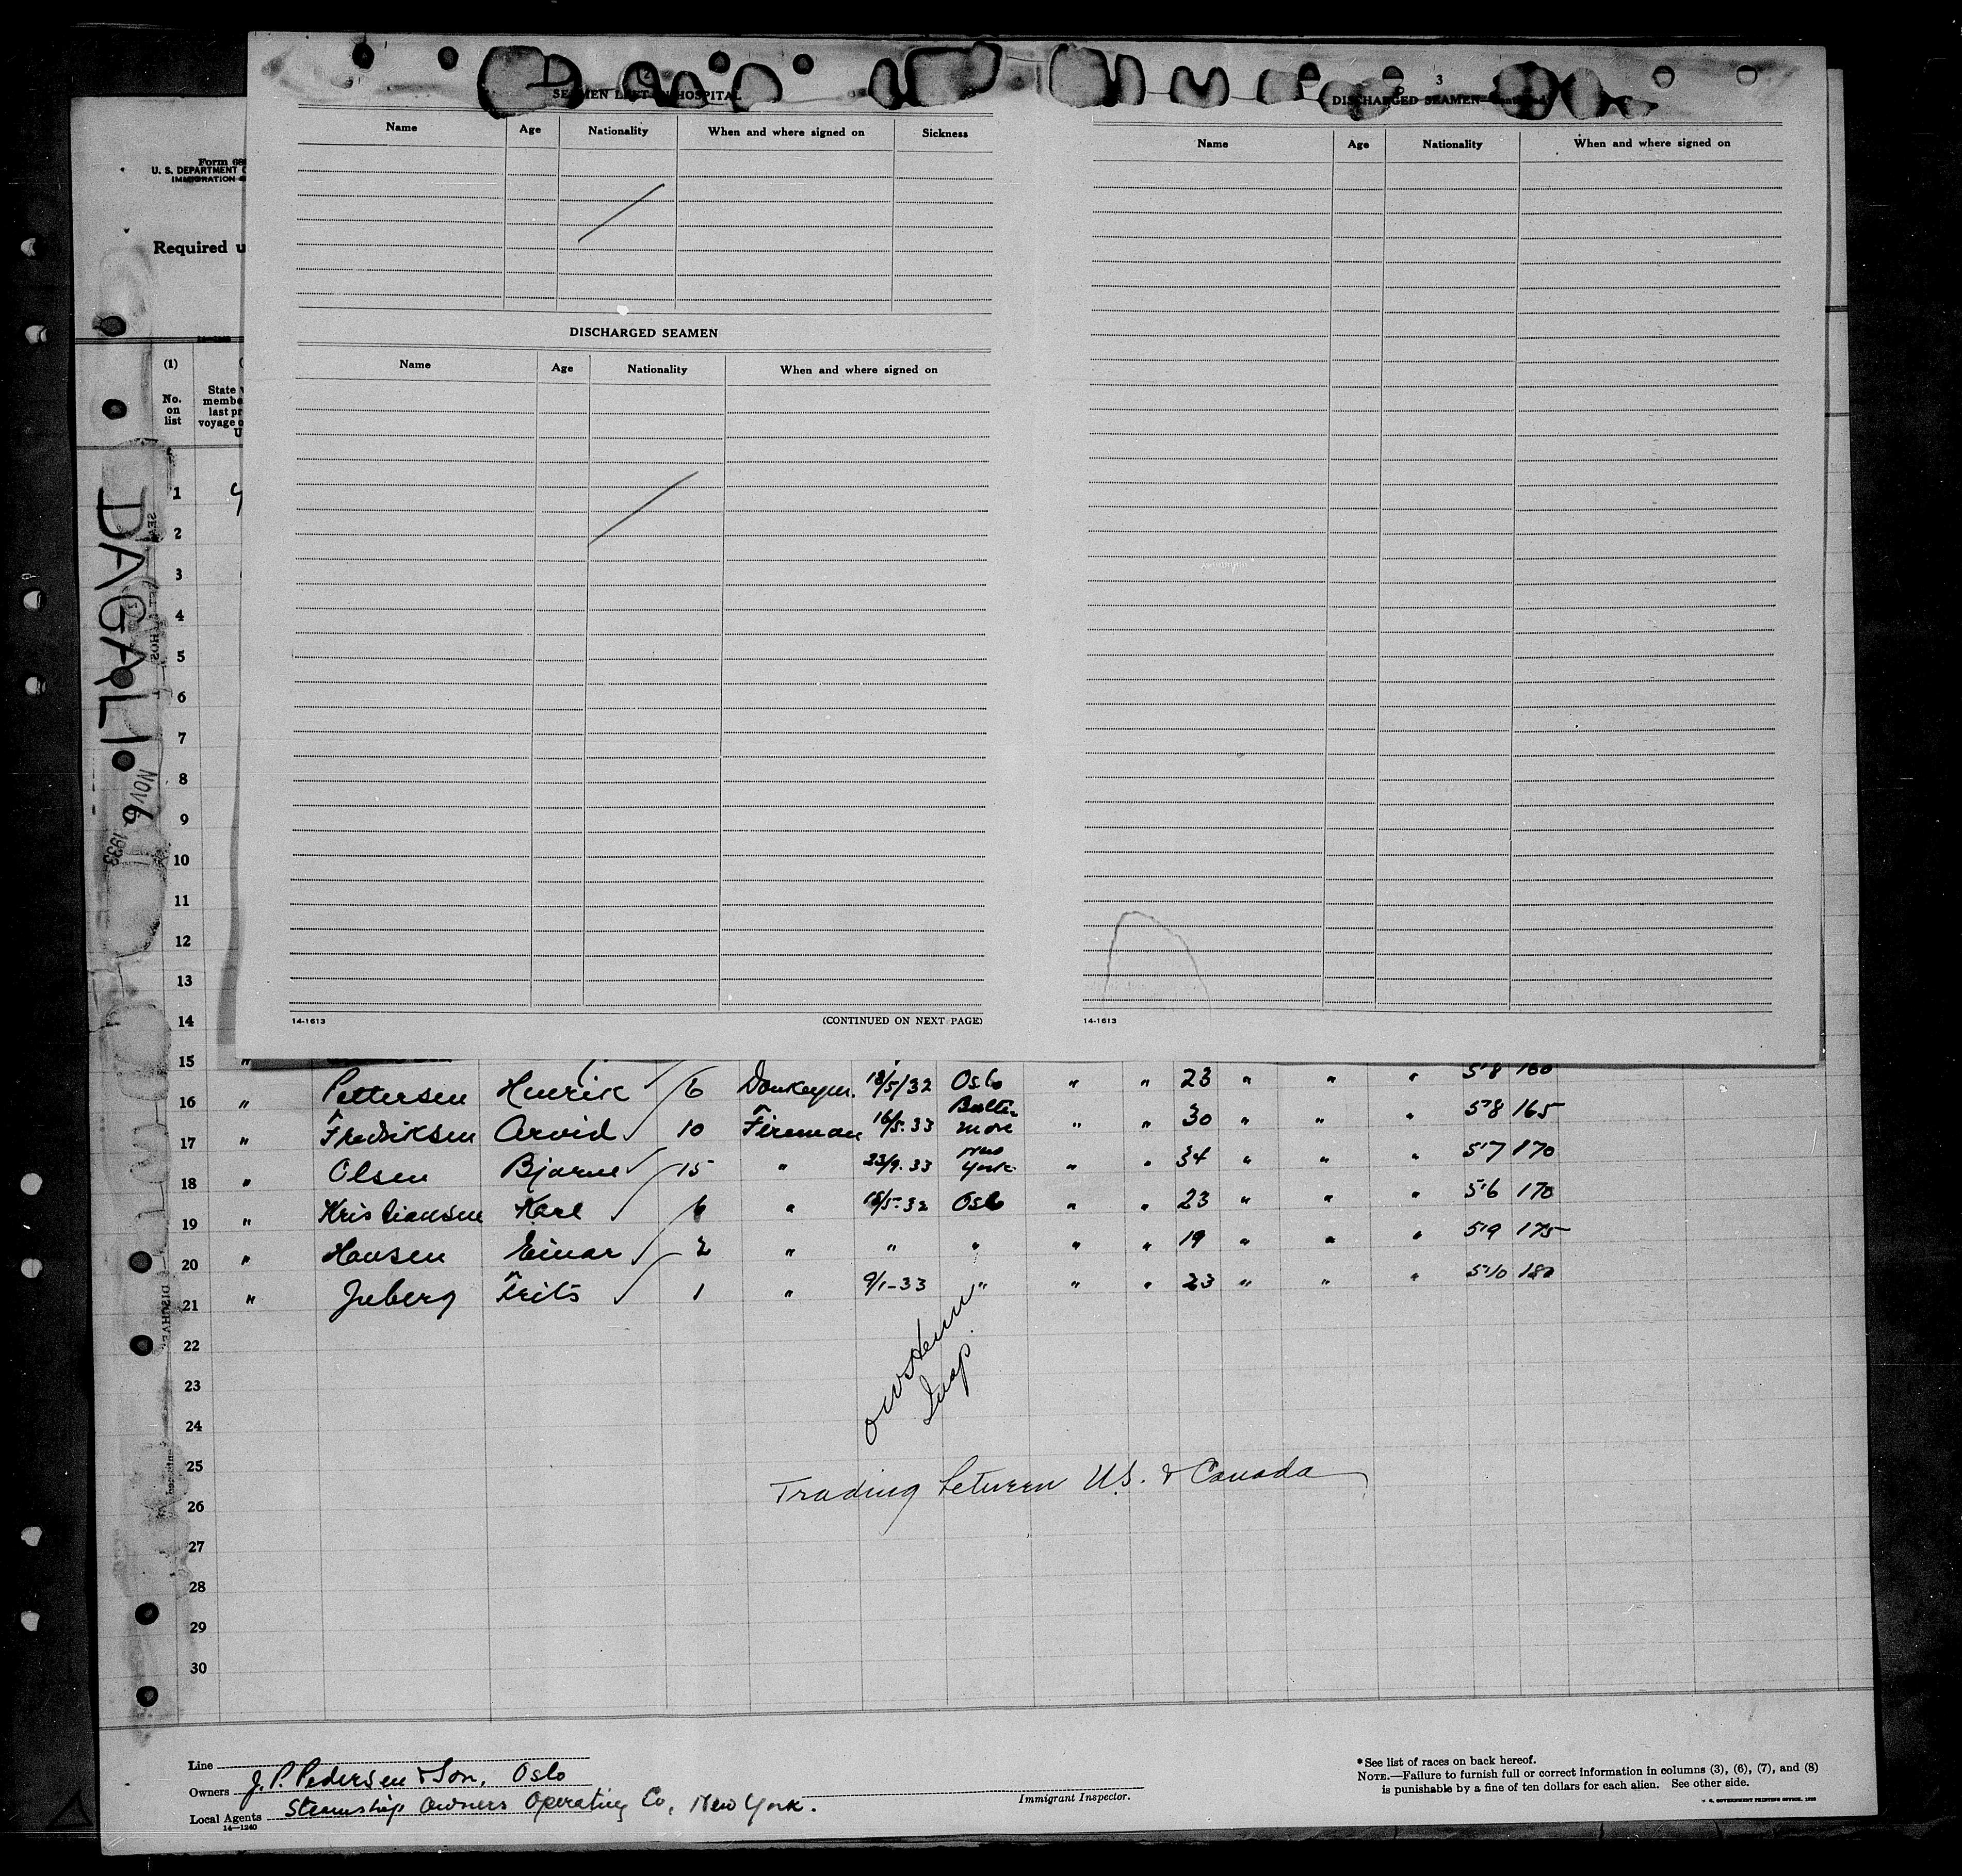 2
SEAMEN LEFT IN HOSPITAL
Name Age Nationality When and where signed on Sickness
DISCHARGED SEAMEN
Name Age Nationality When and where signed on
14-1613 (CONTINUED ON NEXT PAGE)
3
DISCHARGED SEAMEN—Continued
Name Age Nationality When and where signed on
14-1613
Form 68
U. S. DEPARTMENT O
IMMIGRATION
Required u
(1)
No. on list
State w
membe
last pr
voyage o
U
DAGALI
NOV 6 1933
1
2
3
4
5
6
7
8
9
10
11
12
13
14
15 "
16 " Pettersen Henrik 6 Donkeym. 18/5/32 Oslo " " 23 " " " 5'8 160
17 " Fredriksen Arvid 10 Fireman 16/5.33 Baltimore " " 30 " " " 5'8 165
18 " Olsen Bjarne 15 " 23/9.33 New York " " 34 " " " 5'7 170
19 " Kristiansen Karl 6 " 18/5-32 Oslo " " 23 " " " 5'6 170
20 " Hansen Einar 2 " " " " " 19 " " " 5'9 175
21 " Juberg Frits 1 " 9/1-33 " " " 23 " " " 5'10 180
22
23
24
25
Trading between U.S. & Canada
26
27
28
29
30
Line
Owners J. P. Pedersen & Son, Oslo
Local Agents Steamship Owners Operating Co, New York.
14—1240
Immigrant Inspector.
*See list of races on back hereof.
NOTE.—Failure to furnish full or correct information in columns (3), (6), (7), and (8)
is punishable by a fine of ten dollars for each alien. See other side.